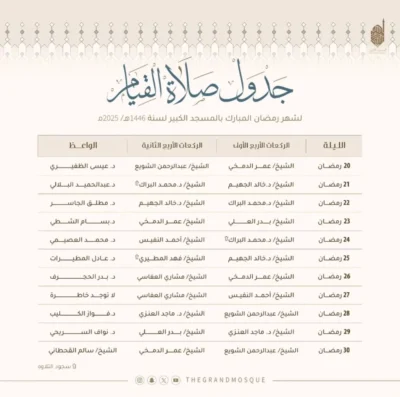 جدول صلاة القيام
لشهر رمضان المبارك بالمسجد الكبير لسنة 1446هـ/ 2025م
الليلة الركعات الأربع الأولى الركعات الأربع الثانية الواعظ
20 رمضان الشيخ/ عمر الدمخي الشيخ/ عبدالرحمن الشويع د. عيسى الظفيري
21 رمضان الشيخ/ د.خالد الجهيم الشيخ/ د.محمد البراك د.عبدالحميد البلالي
22 رمضان الشيخ/ د.محمد البراك الشيخ/ د.خالد الجهيم د. مطلق الجاسر
23 رمضان الشيخ/ بدر العلي الشيخ/ عمر الدمخي د.بسام الشطي
24 رمضان الشيخ/ د.محمد البراك الشيخ/ أحمد النفيس د. محمد العصيمي
25 رمضان الشيخ/ د.خالد الجهيم الشيخ/ فهد المطيري د. عادل المطيرات
26 رمضان الشيخ/ عمر الدمخي الشيخ/ مشاري العفاسي د. بدر الحجرف
27 رمضان الشيخ/ أحمد النفيس الشيخ/ مشاري العفاسي لا توجد خاطرة
28 رمضان الشيخ/ عبدالرحمن الشويع الشيخ/ د. ماجد العنزي د. فواز الكليب
29 رمضان الشيخ/ د. ماجد العنزي الشيخ/ بدر العلي د. نواف السريحي
30 رمضان الشيخ/ عبدالرحمن الشويع الشيخ/ عمر الدمخي الشيخ/ سالم القحطاني
سجود التلاوة
THEGRANDMOSQUE